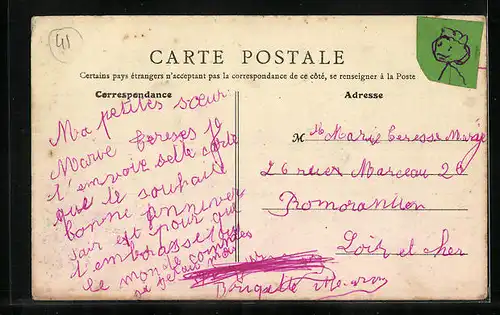 41
CARTE POSTALE
Certains pays étrangers n'acceptant pas la correspondance de ce côté, se renseigner à la Poste
Correspondance
Ma petites sœur
Marie tereses je
t'envoie sette carte
que te souhaite
bonne anniver
sair est pour qui
t'embrasse
le mon
Adresse
M lle Marie Teresse
26 rues Marceau 26
Romorantin
Loir et cher
Brigitte